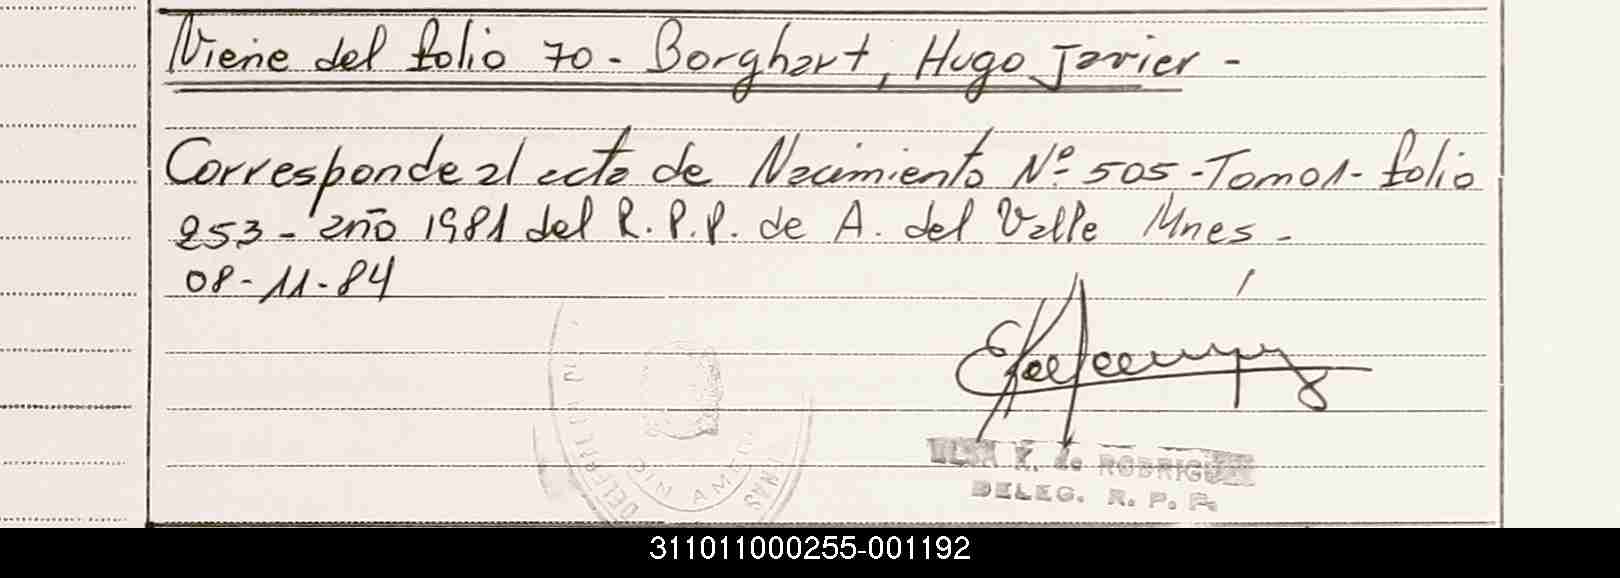 Viene del folio 70 - Borghart, Hugo Javier -
Corresponde al acta de Nacimiento Nº 505 - Tomo 1 - folio
253 - año 1981 del R. P. P. de A. del Valle Mnes -
08-11-84
K. de RODRIGUEZ
DELEG. R. P. P.
311011000255-001192